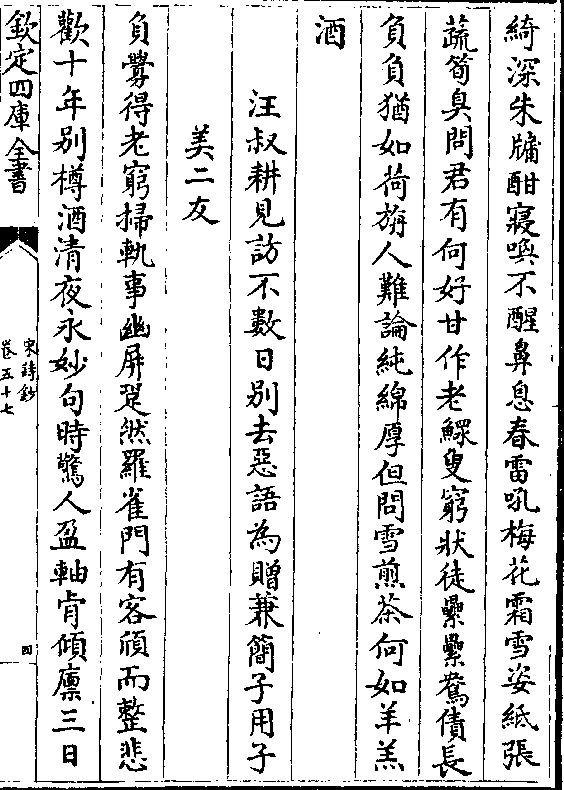 綺深朱牗酣寢喚不醒鼻息春雷吼梅花霜雪姿紙張
蔬筍臭問君有何好甘作老鰥叟窮狀徒纍纍鴛債長
負負猶如荷旃人難論純綿厚但問雪煎茶何如羊羔
酒
汪叔耕見訪不數日別去惡語為贈兼簡子用子
美二友
負釁得老窮掃軌事幽屏跫然羅雀門有客頎而整悲
歡十年別樽酒清夜永妙句時驚人盈軸肯傾廩三日
欽定四庫全書
宋詩鈔
卷五十七
四